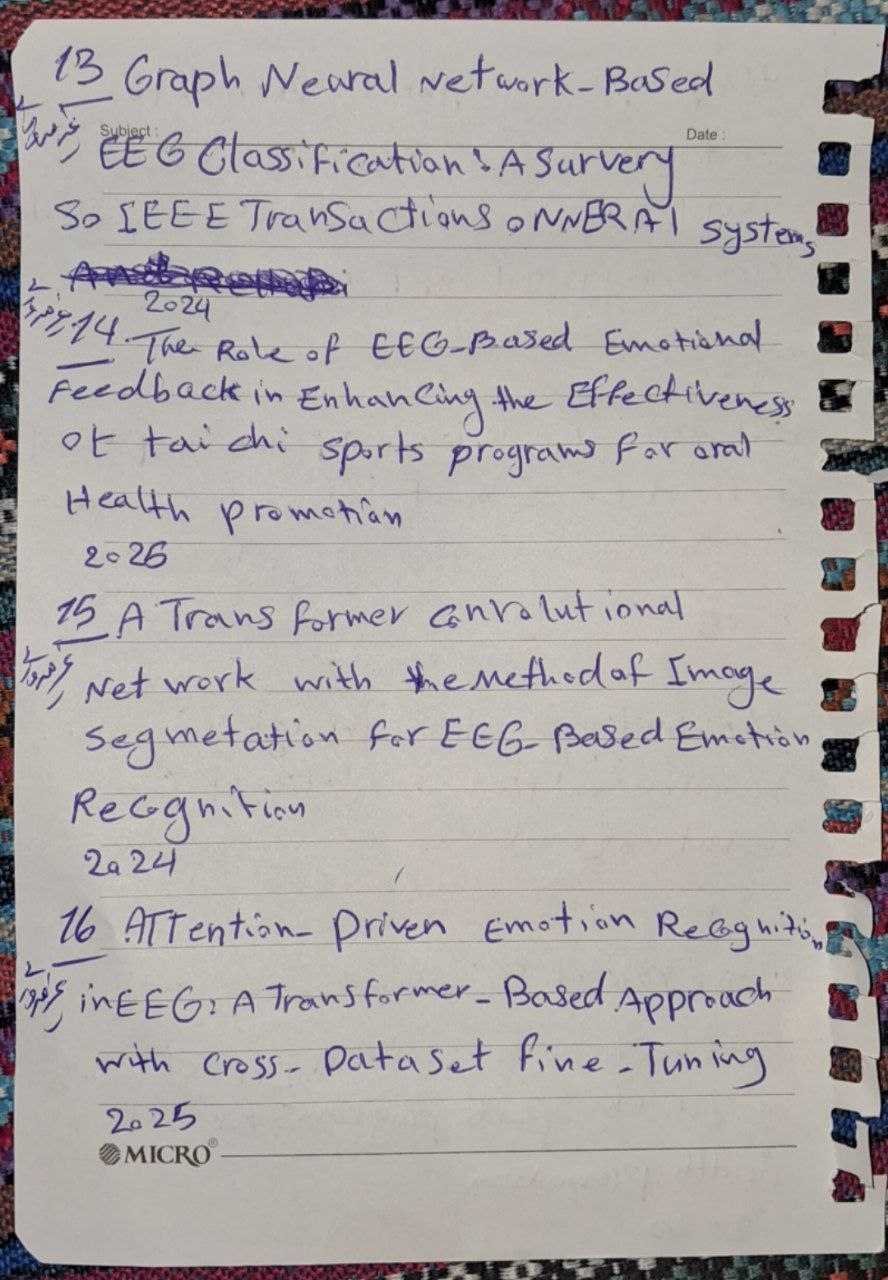 13 Graph Neural Network-Based
Subject :
Date :
EEG Classification: A Survery
So IEEE Transactions oNNERAl systems
2024
14. The Role of EEG-Based Emotional
Feedback in Enhancing the Effectiveness
of tai chi sports programs for oral
Health promotion
2026
15 A Transformer Convolutional
Net work with the Method of Image
Segmetation for EEG-Based Emotion
Recognition
2024
16 ATTention-Driven Emotion Recognition
in EEG: A Transformer-Based Approach
with Cross-Dataset fine-Tuning
2025
MICRO®